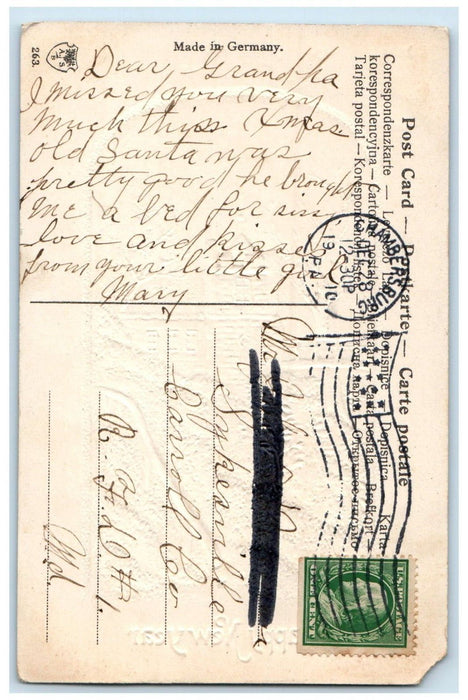 Made in Germany.
263.
Dear, Grandpa
I missed you very
much thiss Xmas
old Santa was
pretty good he brought
me a bed for
love and kisses
from your little girl
Mary
Post Card — Postkarte — Carte postale
Correspondenzkarte
Dopisnice
korespondencyjna — Cartolina postale
Karta
Tarjeta postal —
Открытое письмо
CHAMBERSBURG
DEC 28
12 30P
1910
PA.
Sykesville
Carroll Co
R. F. D # 1.
Md
U.S. POSTAGE
ONE CENT
Happy New Year